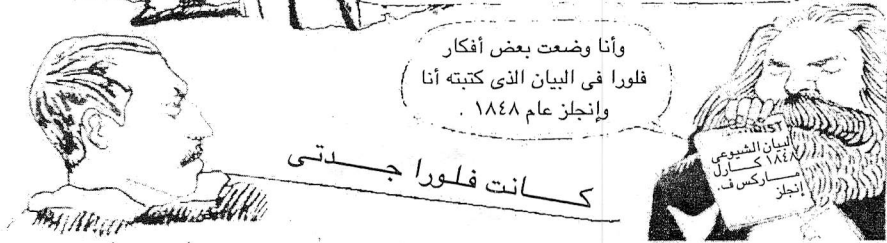 وأنا وضعت بعض أفكار
فلورا فى البيان الذى كتبته أنا
وإنجلز عام ١٨٤٨ .
كانت فلورا جدتى
البيان الشيوعى
١٨٤٨ كارل
ماركس ف.
إنجلز